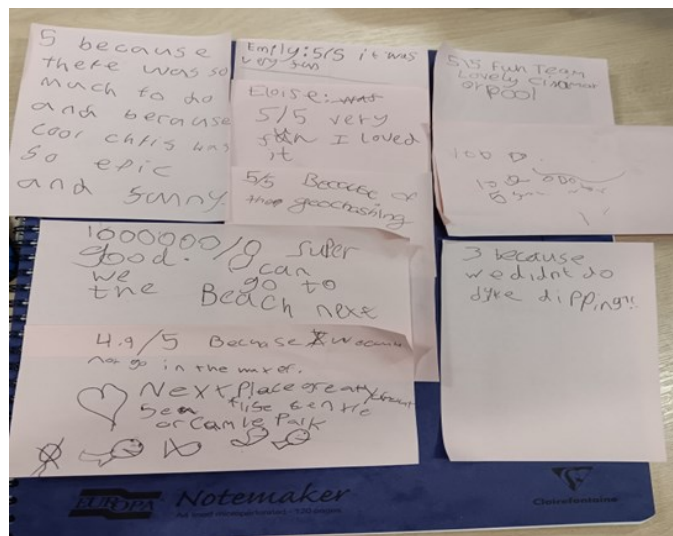 5 because
there was so
much to do
and because
cool chris was
so epic
and sunny
Emply: 5/5 it was
very fun
Eloise:
5/5 very
fun I loved
it
5/5 Because of
the geochashing
5/5 Fun Team
Lovely
or pool
100
1000000/9 super
good. can
we go to
the Beach next
4.9/5 Because we
not go in the water.
Next Place great
Sea life
or
3 because
we didnt do
dyke dipping!!
EUROPA Notemaker
Clairefontaine